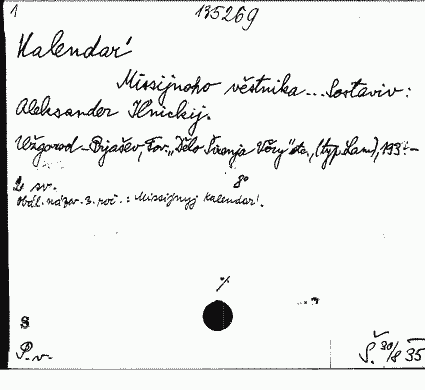 1 135269
Kalendar'
Missijnoho věstnika... Sostaviv:
Aleksander Il'nickij.
Užgorod-Prjašev, Tov. „DěloŠirenja Věry" etc., (typ. Lam), 193.-
2 sv. 8°
Obál. název 3. roč.: Missijnyj kalendar'.
%
S
P. v. Š. 30/8 35